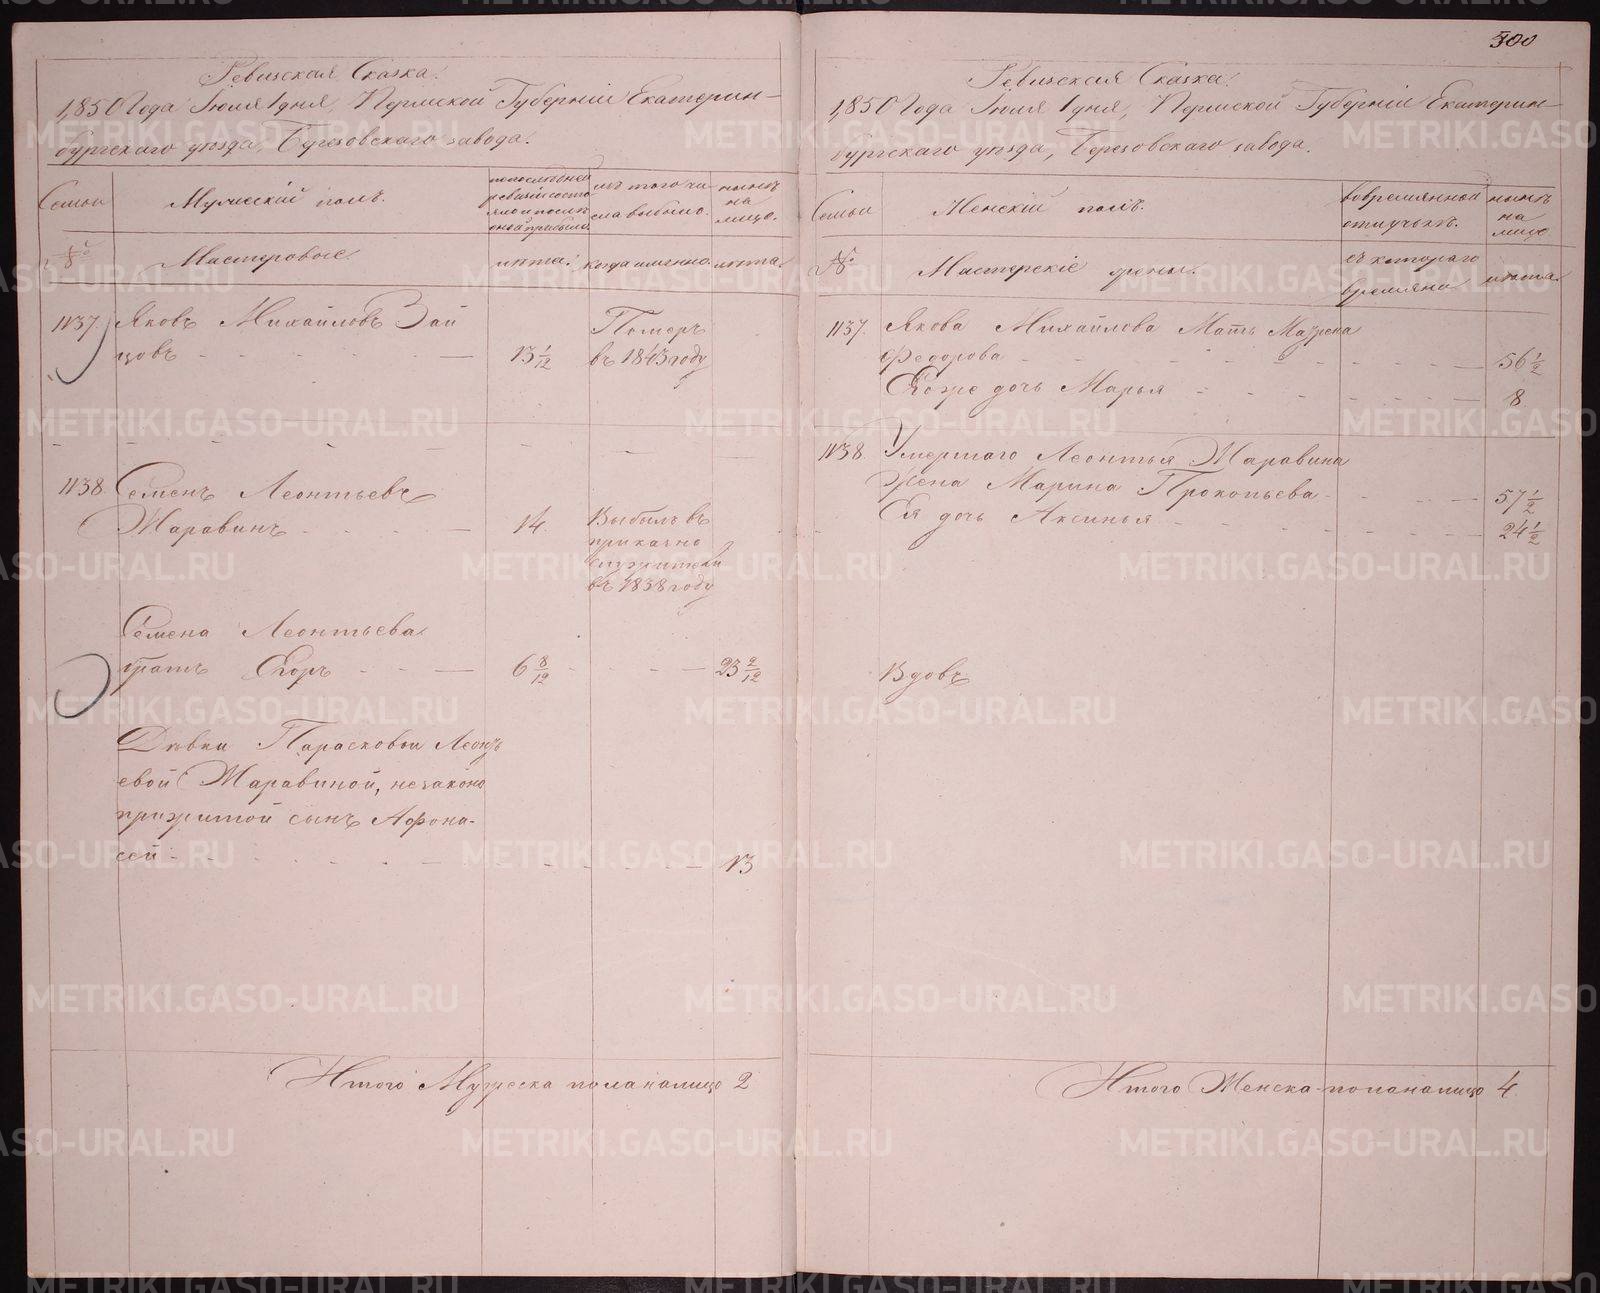 Ревизская Сказка.
1850 Года Iюля 1 дня, Пермской Губернiи Екатерин-
бургскаго уѣзда, Березовскаго завода.
Семьи
Мужескiй полъ.
по последней
ревизiи состо
яло и послѣ
оной прибыло.
изъ того чи-
сла выбыло.
нынѣ
на
лицо.
№
Мастеровые
лѣта.
когда именно.
лѣта.
1137.
Яковъ Михайловъ Зай
цовъ
13 1/12
Померъ
въ 1843 году
1138.
Семенъ Леонтьевъ
Жаравинъ
14.
Выбылъ въ
приказно
служители
въ 1838 году
Семена Леонтьева
братъ Егоръ
6 8/12
23 2/12
Дѣвки Парасковьи Леонть
евой Жаравиной, незаконо
прижитой сынъ Афона-
сей
13
Итого Мужеска пола налицо 2
300
Ревизская Сказка.
1850 Года Iюля 1 дня, Пермской Губернiи Екатерин-
бургскаго уѣзда, Березовскаго завода.
Семьи
Женскiй полъ.
во времянной
отлучкѣ.
нынѣ
на
лицо
№
Мастерскiе жены.
съ котораго
времяни
лѣта.
1137.
Якова Михайлова Мать Маѵрена
Федорова
56 1/2
Ея же дочь Марья
8
1138.
Умершаго Леонтья Жаравина
Жена Марина Прокопьева
57 1/2
Ея дочь Аксинья
24 1/2
Вдовъ
Итого Женска пола налицо 4
METRIKI.GASO-URAL.RU